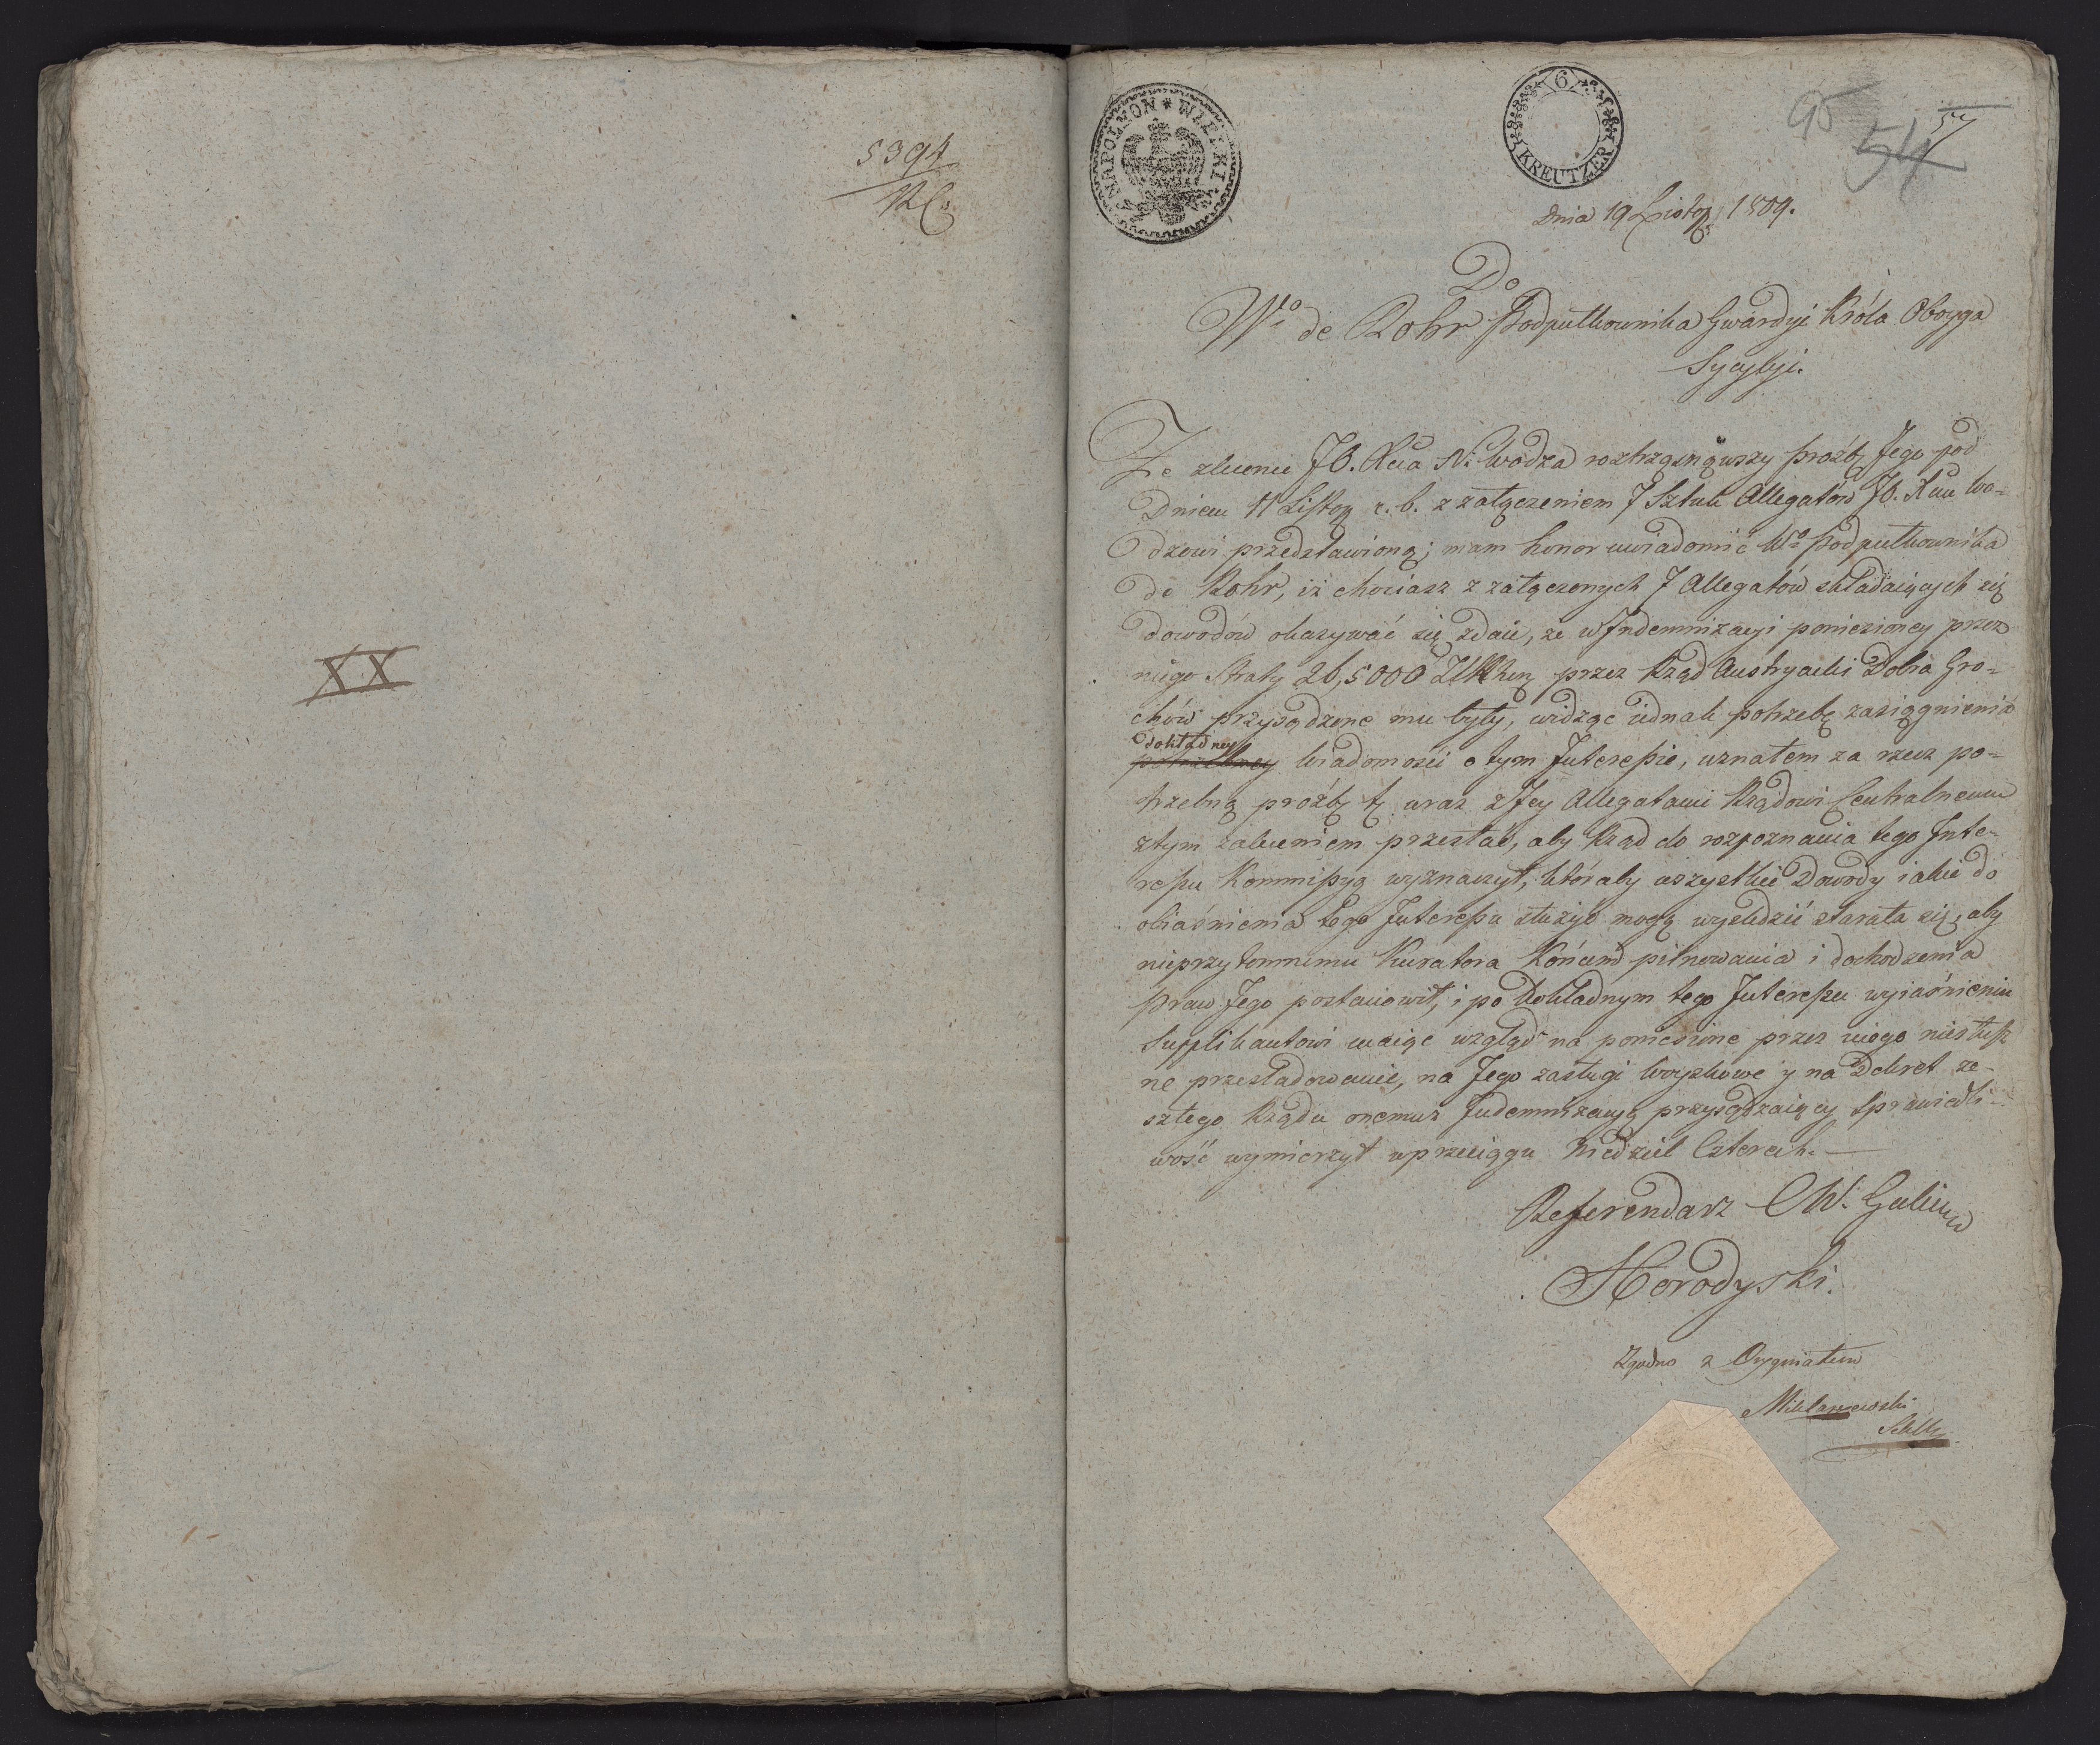 5394
RC.
XX
NAPOLEON * WIELKI
6
KREUTZER
95
54
57
Dnia 19 Listop. 1809.
Do
Wo de Rohr Podpułkownika Gwardyi Króla Oboyga
Sycylyi.
Ze zlecenia JO. Xcia N. Wodza roztrząsnąwszy proźbę Jego pod
Dniem 11 Listop r. b. z załączeniem 7 Sztuk Allegatów JO. Xciu Wo-
dzowi przedstawioną; mam honor uwiadomić Wo Podpułkownika
de Rohr, iż chociasz z załączonych 7 Allegatów składaiących się
dowodów okazywać się zdaie, że w Indemnizacyi poniesioney przez
niego Straty 26,5000 przez Rząd Austryacki Dobra Gro-
chów przysądzone mu były, widząc iednak potrzebę zasiągnienia
dokładney
potrzebney wiadomości o tym Interessie, uznałem za rzecz po-
trzebną proźbę tę wraz z Jey Allegatami Rządowi Centralnemu
z tym zaleceniem przesłać, aby Rząd do rozpoznania tego Inte-
ressu Kommissyą wyznaczył, któraby wszystkie Dowody iakie do
obiaśnienia tego Interessu służyć mogą wyśledzić starała się, aby
nieprzytomnemu Kuratora Końcem pilnowania i dochodzenia
praw Jego postanowił, i po dokładnym tego Interessu wyiaśnieniu
Supplikantowi maiąc wzgląd na poniesione przez niego niesłusz
ne prześladowanie, na Jego zasługi woyskowe y na Dekret ze-
szłego Rządu onemuż Indemnizacyą przysądzaiący Sprawiedli-
wość wymierzył w przeciągu Niedziel Czterech.—
Referendarz W. Galicuu
Horodyski.
Zgodno z Oryginałem
Miklaszewski